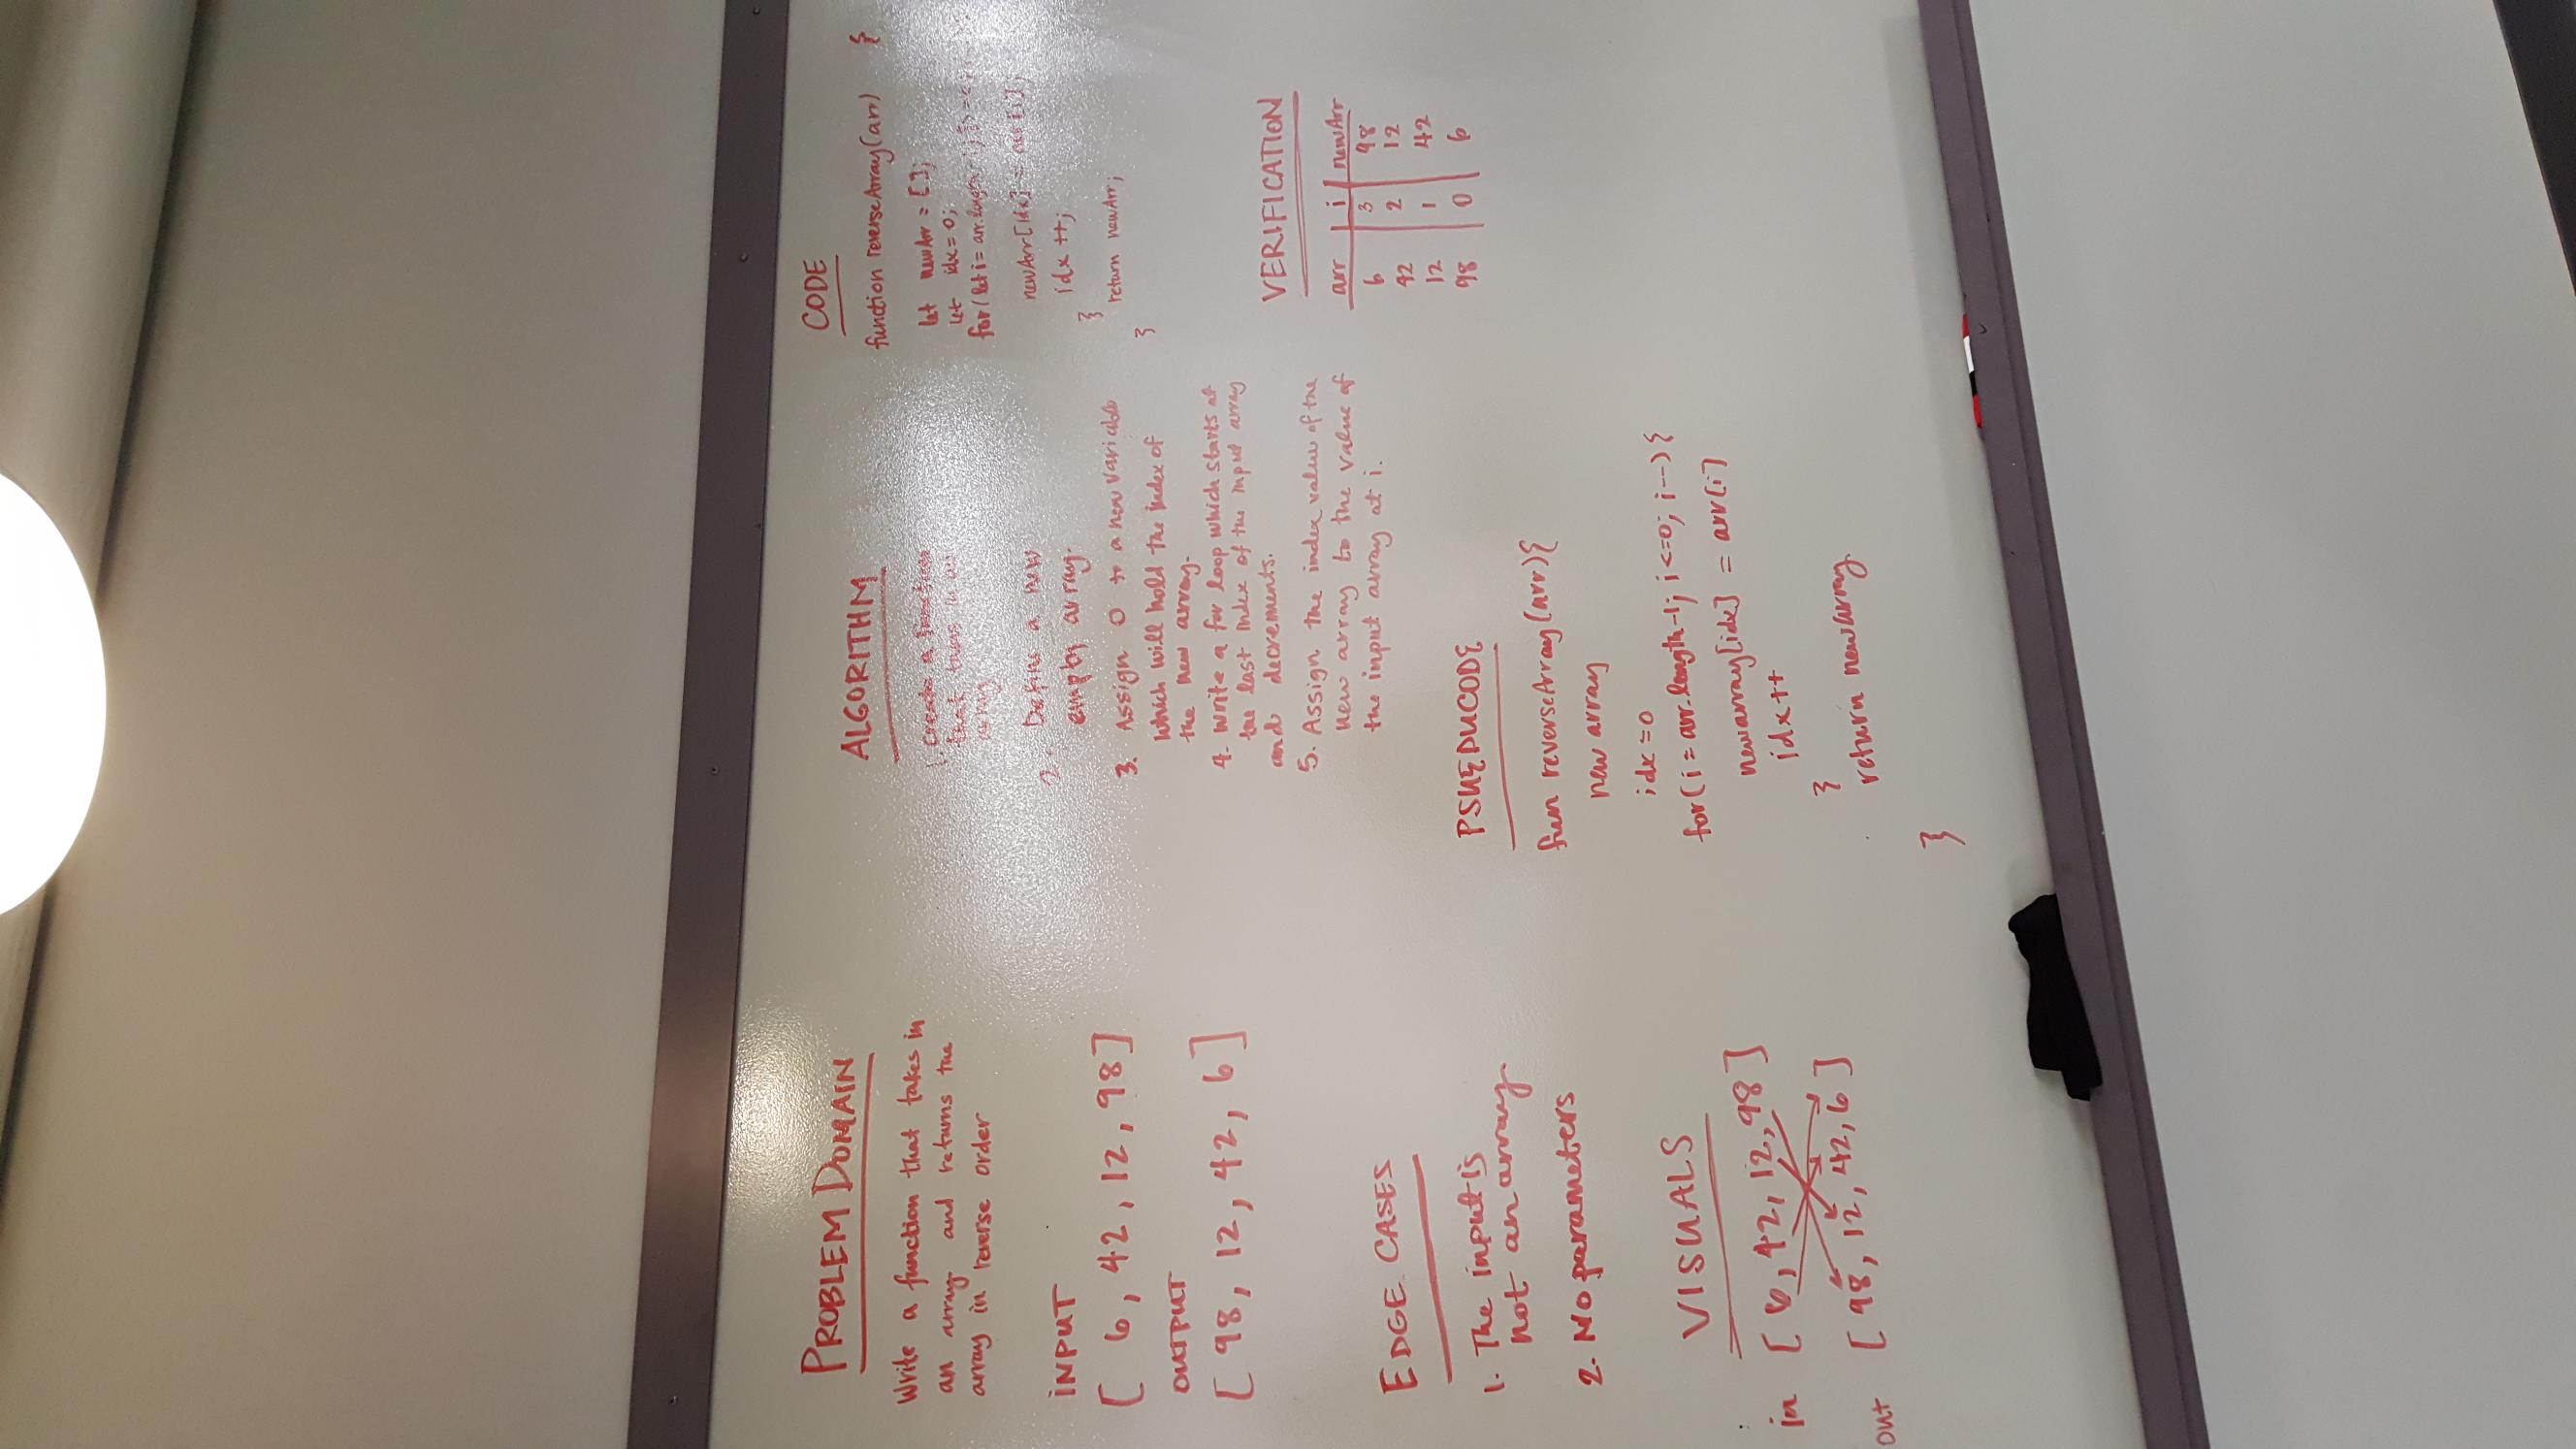 PROBLEM DOMAIN
Write a function that takes in
an array and returns the
array in reverse order
INPUT
[ 6, 42, 12, 98]
OUTPUT
[ 98, 12, 42, 6 ]
EDGE CASES
1. The input is
not an array.
2. No parameters
VISUALS
in [ 6, 42, 12, 98 ]
out [ 98, 12, 42, 6 ]
ALGORITHM
1. Create a function
that takes in an
array
2. Define a new
empty array.
3. Assign 0 to a new variable
which will hold the index of
the new array.
4. Write a for loop which starts at
the last index of the input array
and decrements.
5. Assign the index value of the
new array to the value of
the input array at i.
PSUEDUCODE
fun reverseArray(arr){
new array
idx = 0
for(i = arr.length-1; i<=0; i--){
newarray[idx] = arr[i]
idx++
}
return newarray
}
CODE
function reverseArray(arr) {
let newArr = [];
let idx = 0;
for(let i = arr.length
newArr[idx] = arr[i];
idx ++;
}
return newArr;
}
VERIFICATION
arr i newArr
6 3 98
42 2 12
12 1 42
98 0 6